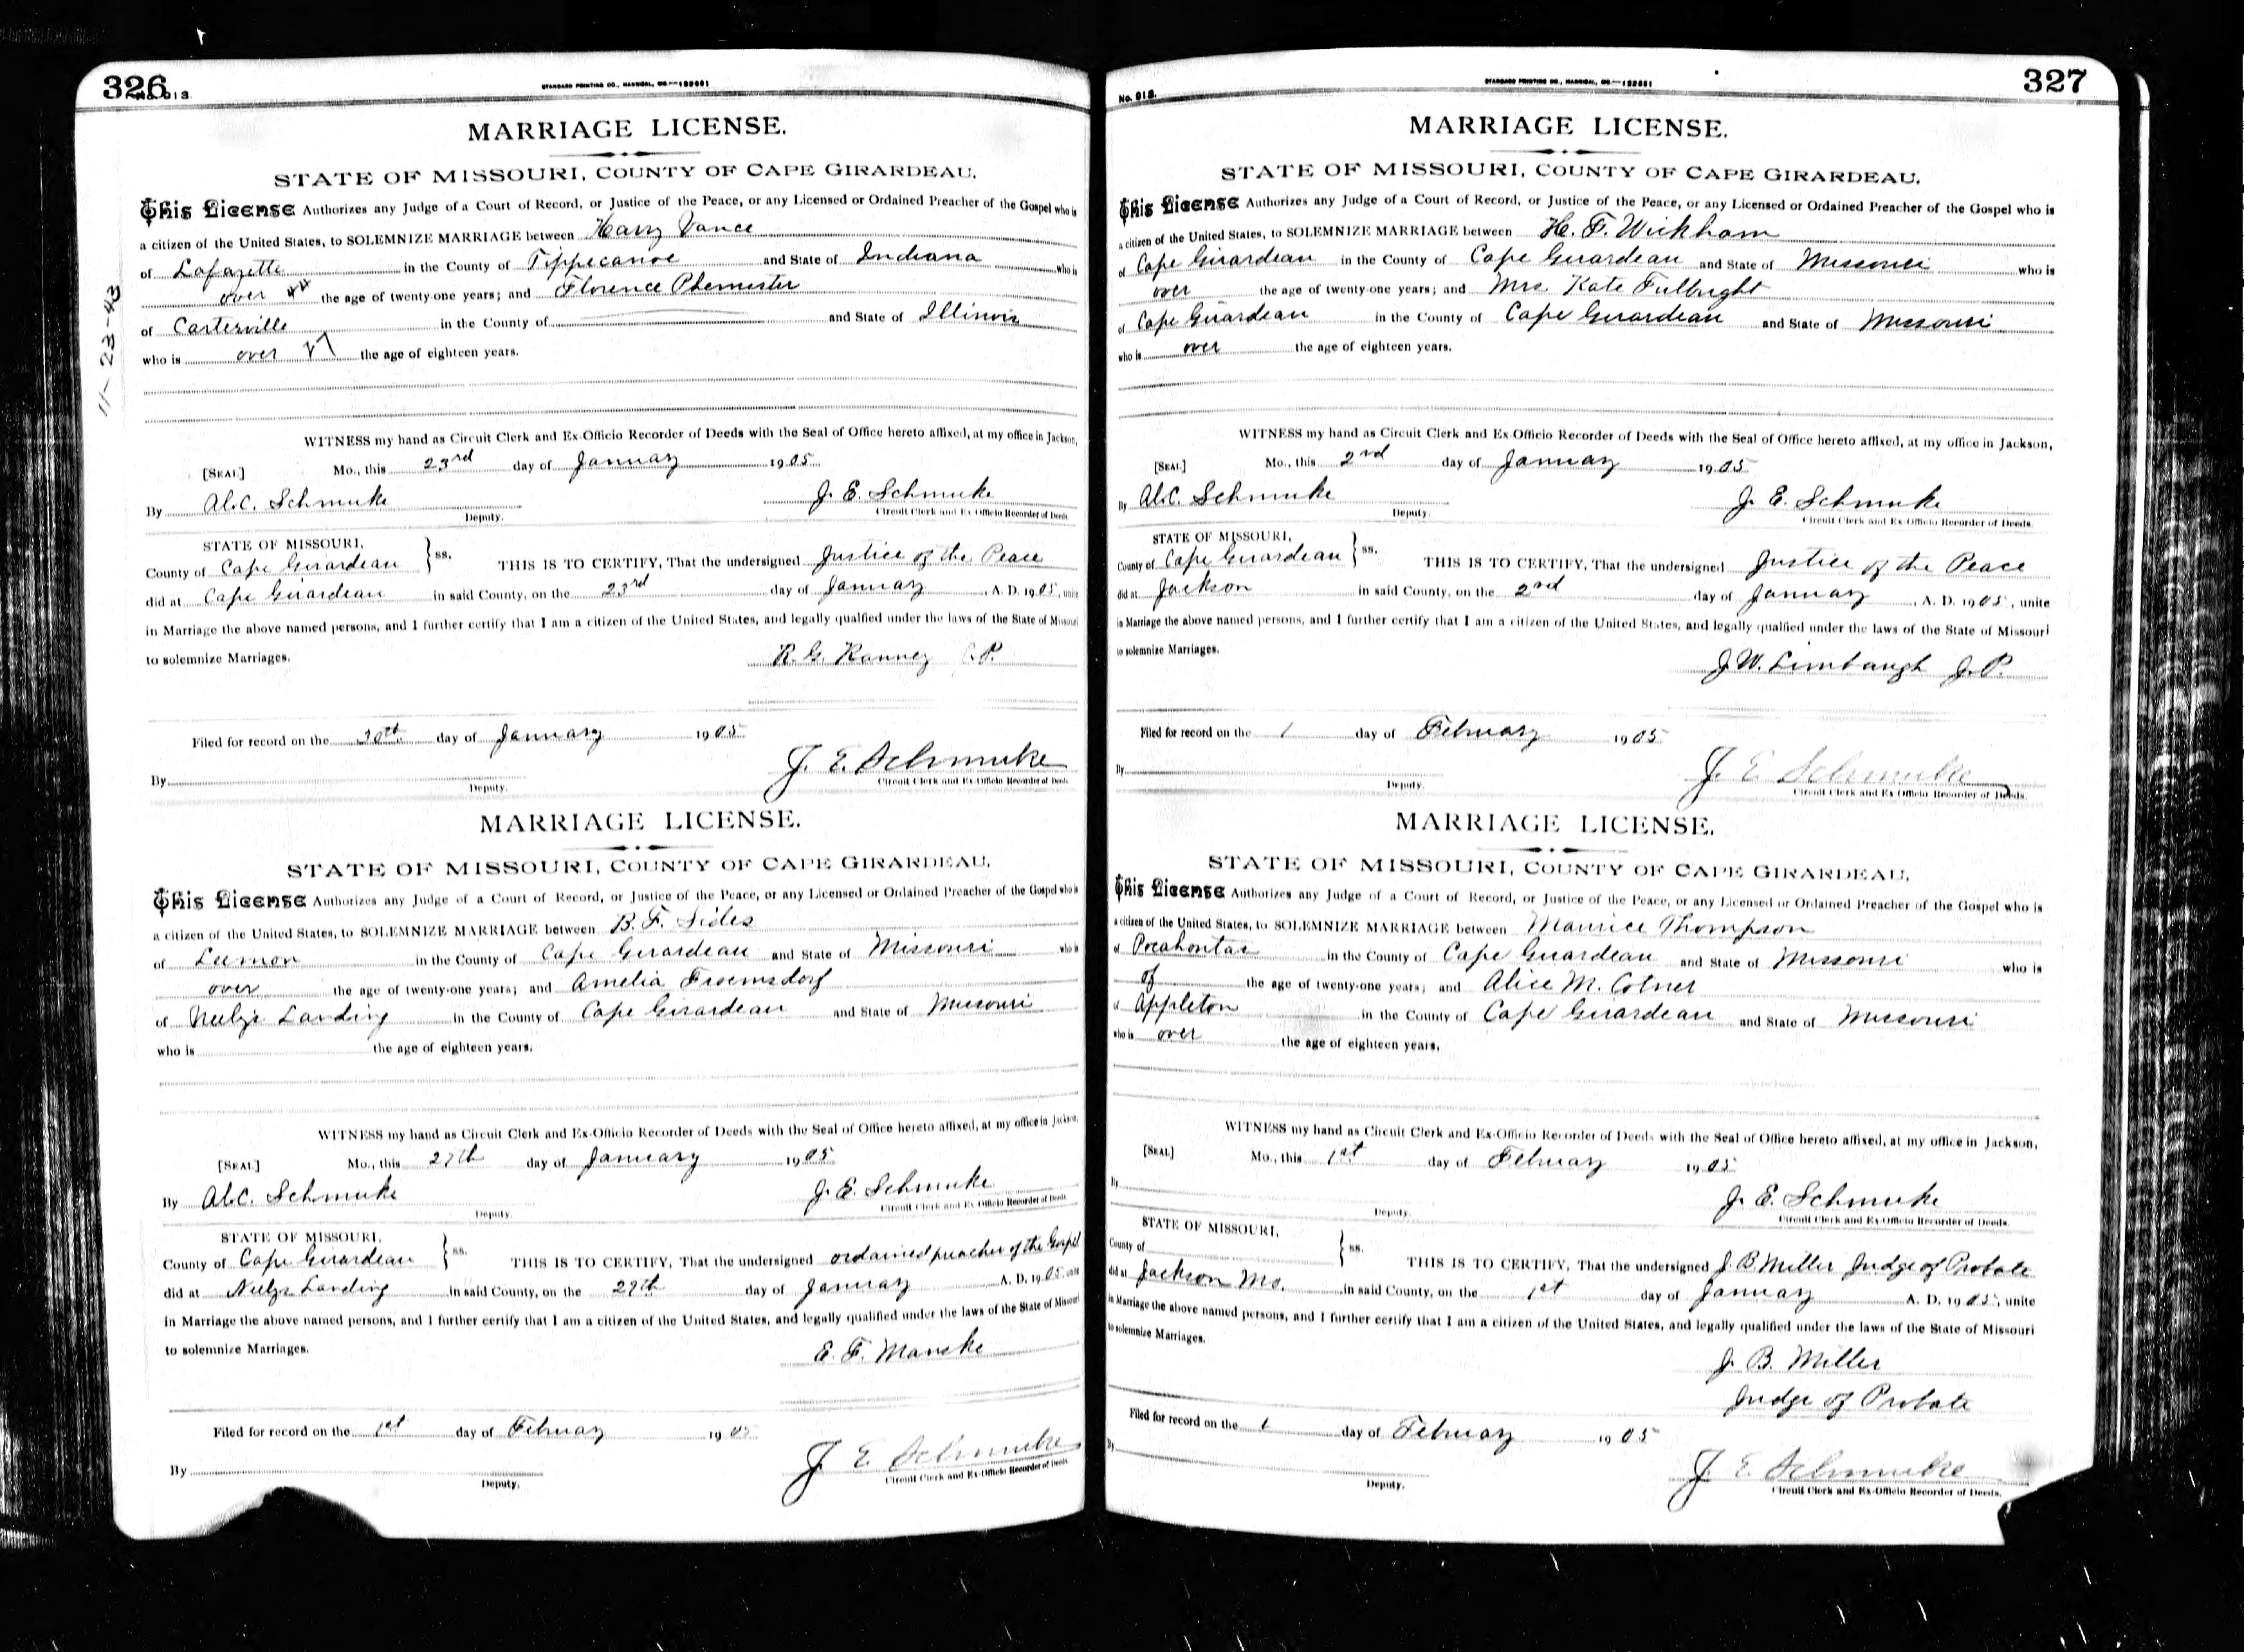 326
No. 013.
STANDARD PRINTING CO., HANNIBAL, MO.—122661
MARRIAGE LICENSE.
STATE OF MISSOURI, COUNTY OF CAPE GIRARDEAU.
This License Authorizes any Judge of a Court of Record, or Justice of the Peace, or any Licensed or Ordained Preacher of the Gospel who is
a citizen of the United States, to SOLEMNIZE MARRIAGE between Harry Vance
of Lafayette in the County of Tippecanoe and State of Indiana who is
over the age of twenty-one years; and Florence Phemister
of Carterville in the County of and State of Illinois
who is over the age of eighteen years.
11-23-43
WITNESS my hand as Circuit Clerk and Ex-Officio Recorder of Deeds with the Seal of Office hereto affixed, at my office in Jackson,
[SEAL] Mo., this 23rd day of January 1905
By Al.C. Schmuke J. E. Schmuke
Deputy. Circuit Clerk and Ex-Officio Recorder of Deeds.
STATE OF MISSOURI,
County of Cape Girardeau } ss. THIS IS TO CERTIFY, That the undersigned Justice of the Peace
did at Cape Girardeau in said County, on the 23rd day of January, A. D. 1905, unite
in Marriage the above named persons, and I further certify that I am a citizen of the United States, and legally qualfied under the laws of the State of Missouri
to solemnize Marriages.
R. G. Ranney J.P.
Filed for record on the 30th day of January 1905
J. E. Schmuke
By Deputy. Circuit Clerk and Ex-Officio Recorder of Deeds.
MARRIAGE LICENSE.
STATE OF MISSOURI, COUNTY OF CAPE GIRARDEAU.
This License Authorizes any Judge of a Court of Record, or Justice of the Peace, or any Licensed or Ordained Preacher of the Gospel who is
a citizen of the United States, to SOLEMNIZE MARRIAGE between B. F. Sides
of Leemon in the County of Cape Girardeau and State of Missouri who is
over the age of twenty-one years; and Amelia Froemsdorf
of Neelys Landing in the County of Cape Girardeau and State of Missouri
who is the age of eighteen years.
WITNESS my hand as Circuit Clerk and Ex-Officio Recorder of Deeds with the Seal of Office hereto affixed, at my office in Jackson,
[SEAL] Mo., this 27th day of January 1905
By Al.C. Schmuke J. E. Schmuke
Deputy. Circuit Clerk and Ex-Officio Recorder of Deeds
STATE OF MISSOURI,
County of Cape Girardeau } ss. THIS IS TO CERTIFY, That the undersigned ordained preacher of the Gospel
did at Neelys Landing in said County, on the 29th day of January A. D. 1905, unite
in Marriage the above named persons, and I further certify that I am a citizen of the United States, and legally qualified under the laws of the State of Missouri
to solemnize Marriages.
E. F. Manske
Filed for record on the 1st day of February 1905
J. E. Schmuke
By Deputy. Circuit Clerk and Ex-Officio Recorder of Deeds
327
No. 013.
STANDARD PRINTING CO., HANNIBAL, MO.—122661
MARRIAGE LICENSE.
STATE OF MISSOURI, COUNTY OF CAPE GIRARDEAU.
This License Authorizes any Judge of a Court of Record, or Justice of the Peace, or any Licensed or Ordained Preacher of the Gospel who is
a citizen of the United States, to SOLEMNIZE MARRIAGE between H. F. Wickham
of Cape Girardeau in the County of Cape Girardeau and State of Missouri who is
over the age of twenty-one years; and Mrs. Kate Fulbright
of Cape Girardeau in the County of Cape Girardeau and State of Missouri
who is over the age of eighteen years.
WITNESS my hand as Circuit Clerk and Ex-Officio Recorder of Deeds with the Seal of Office hereto affixed, at my office in Jackson,
[SEAL] Mo., this 2nd day of January 1905
By Al.C. Schmuke J. E. Schmuke
Deputy. Circuit Clerk and Ex-Officio Recorder of Deeds.
STATE OF MISSOURI,
County of Cape Girardeau } ss. THIS IS TO CERTIFY, That the undersigned Justice of the Peace
did at Jackson in said County, on the 2nd day of January, A. D. 1905, unite
in Marriage the above named persons, and I further certify that I am a citizen of the United States, and legally qualfied under the laws of the State of Missouri
to solemnize Marriages.
J. W. Limbaugh J. P.
Filed for record on the 1 day of February 1905
J. E. Schmuke
By Deputy. Circuit Clerk and Ex Officio Recorder of Deeds.
MARRIAGE LICENSE.
STATE OF MISSOURI, COUNTY OF CAPE GIRARDEAU.
This License Authorizes any Judge of a Court of Record, or Justice of the Peace, or any Licensed or Ordained Preacher of the Gospel who is
a citizen of the United States, to SOLEMNIZE MARRIAGE between Maurice Thompson
of Pocahontas in the County of Cape Girardeau and State of Missouri who is
of the age of twenty-one years; and Alice M. Cotner
of Appleton in the County of Cape Girardeau and State of Missouri
who is over the age of eighteen years.
WITNESS my hand as Circuit Clerk and Ex-Officio Recorder of Deeds with the Seal of Office hereto affixed, at my office in Jackson,
[SEAL] Mo., this 1st day of February 1905
By J. E. Schmuke
Deputy. Circuit Clerk and Ex-Officio Recorder of Deeds.
STATE OF MISSOURI,
County of } ss. THIS IS TO CERTIFY, That the undersigned J. B. Miller Judge of Probate
did at Jackson Mo. in said County, on the 1st day of January A. D. 1905, unite
in Marriage the above named persons, and I further certify that I am a citizen of the United States, and legally qualified under the laws of the State of Missouri
to solemnize Marriages.
J. B. Miller
Judge of Probate
Filed for record on the 1 day of February 1905
J. E. Schmuke
By Deputy. Circuit Clerk and Ex-Officio Recorder of Deeds.